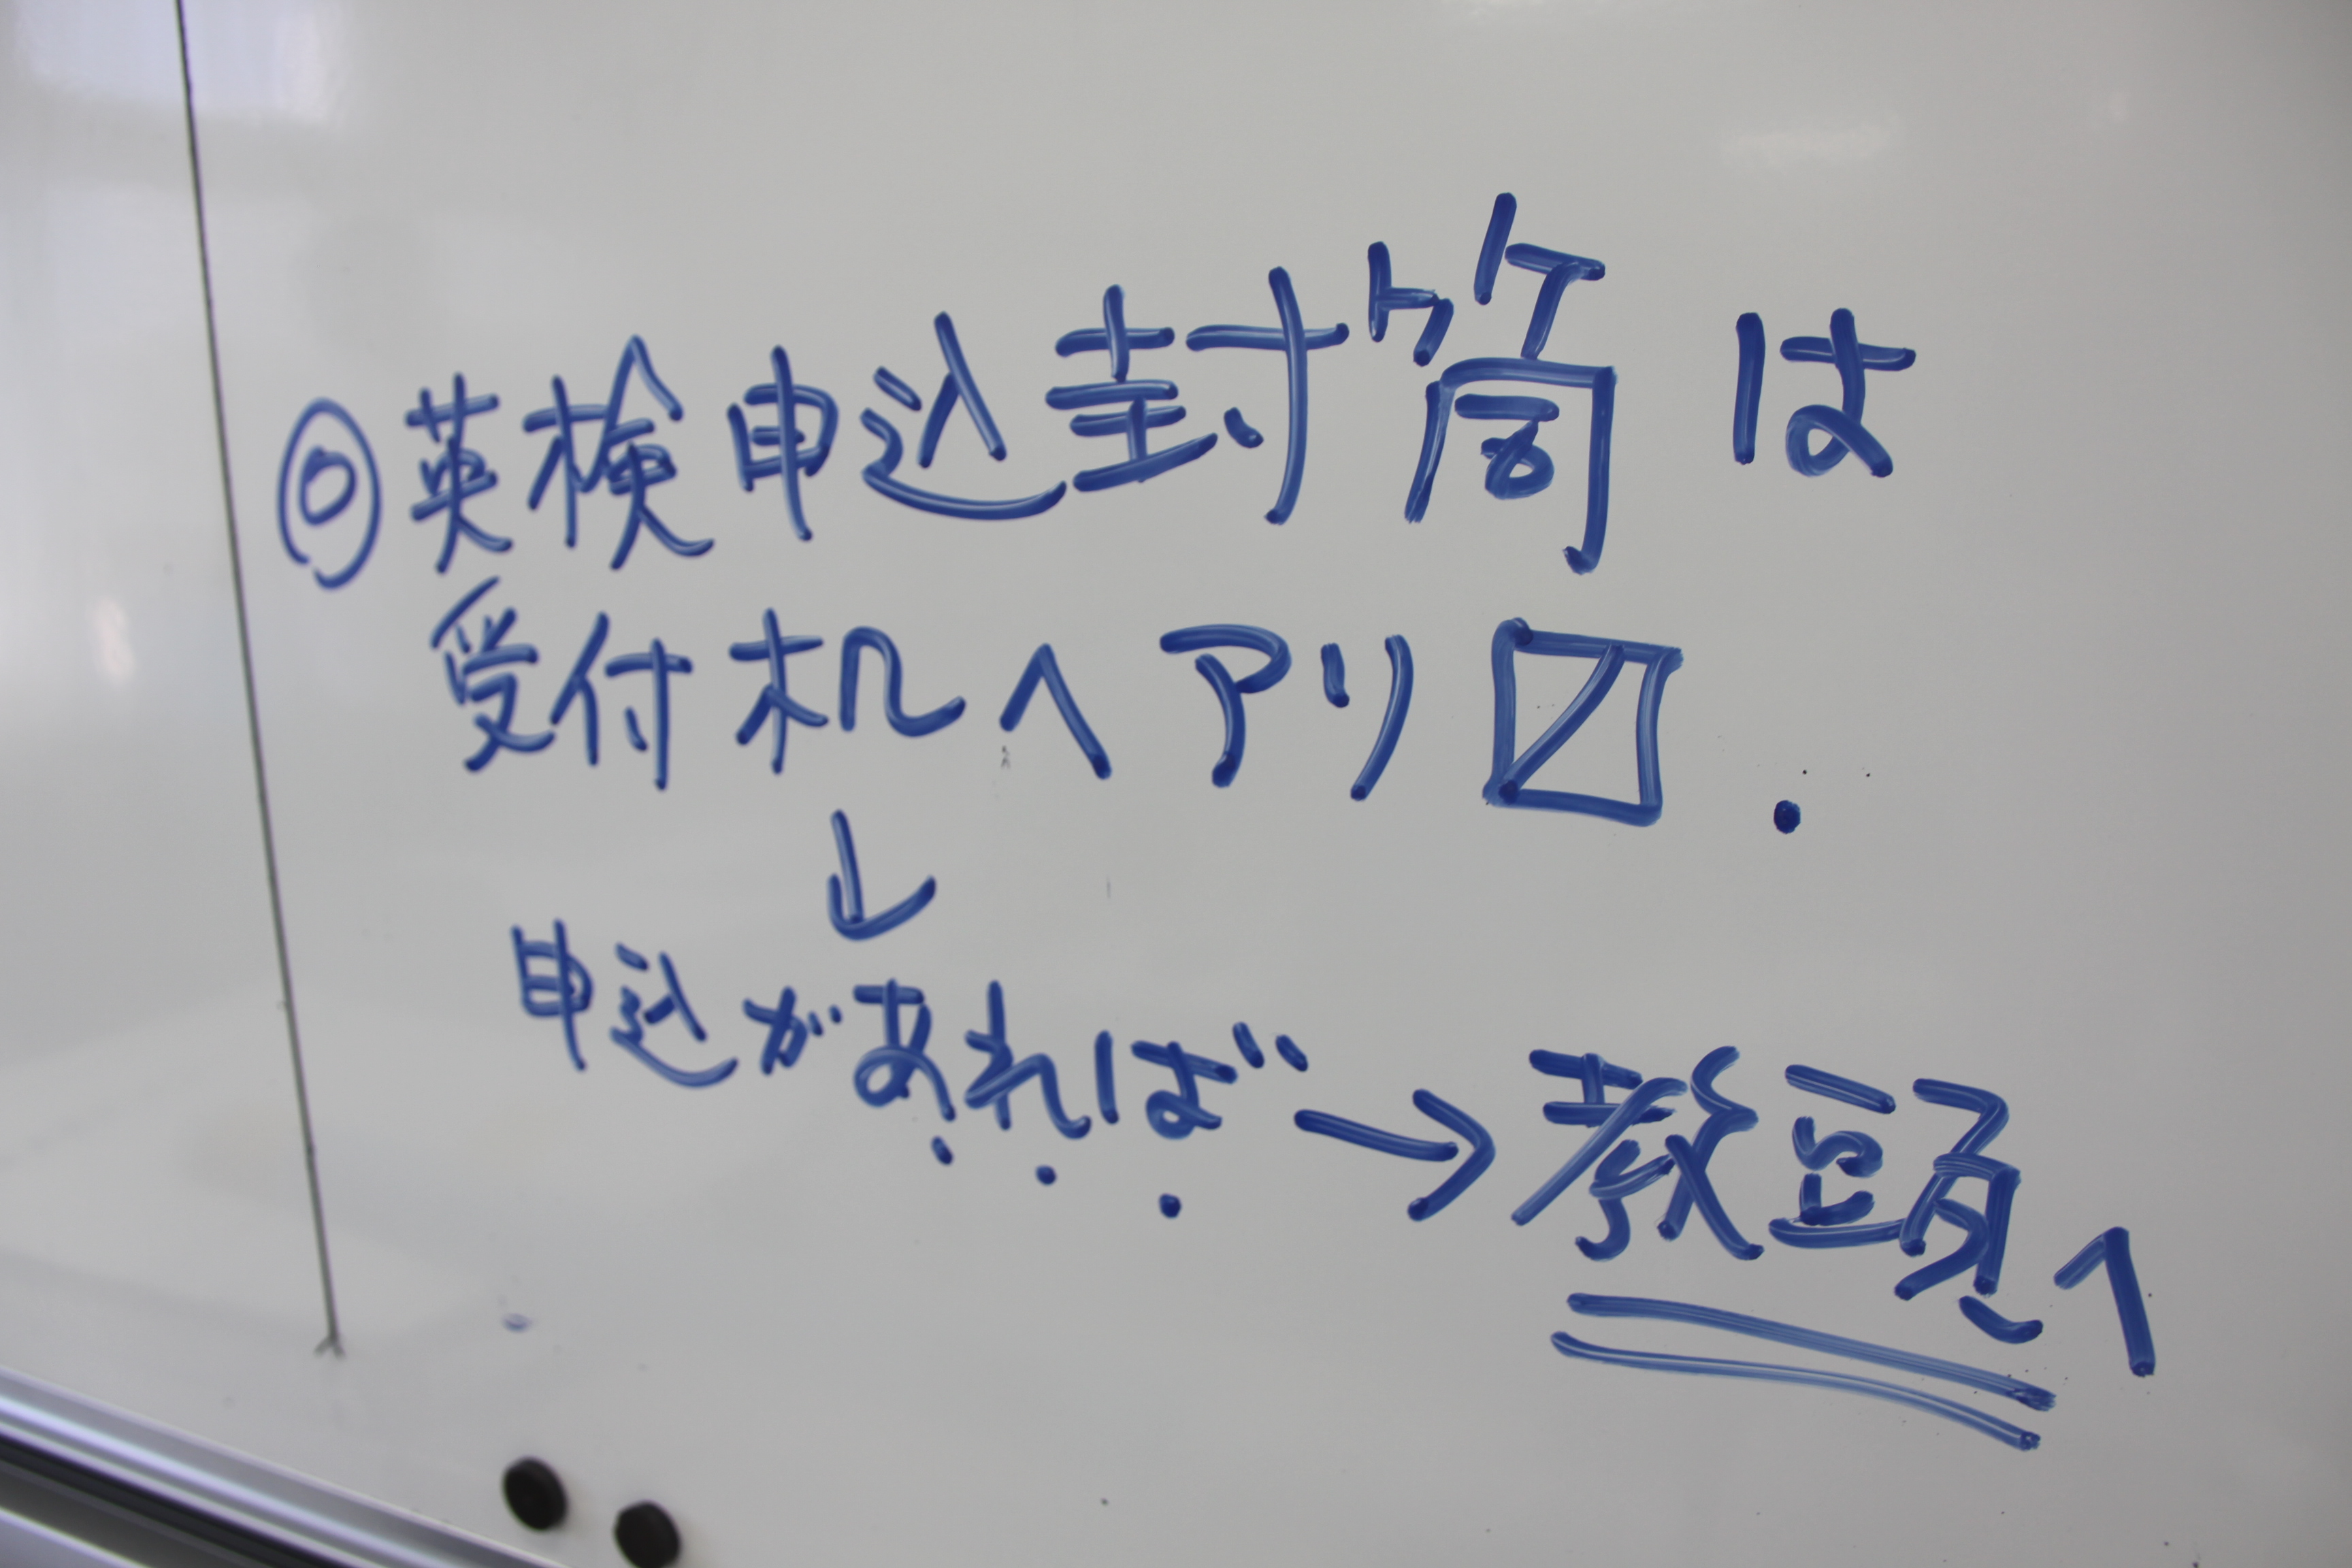 ◎英検申込封筒は
受付机へアリ〼.
↓
申込があれば→教頭へ